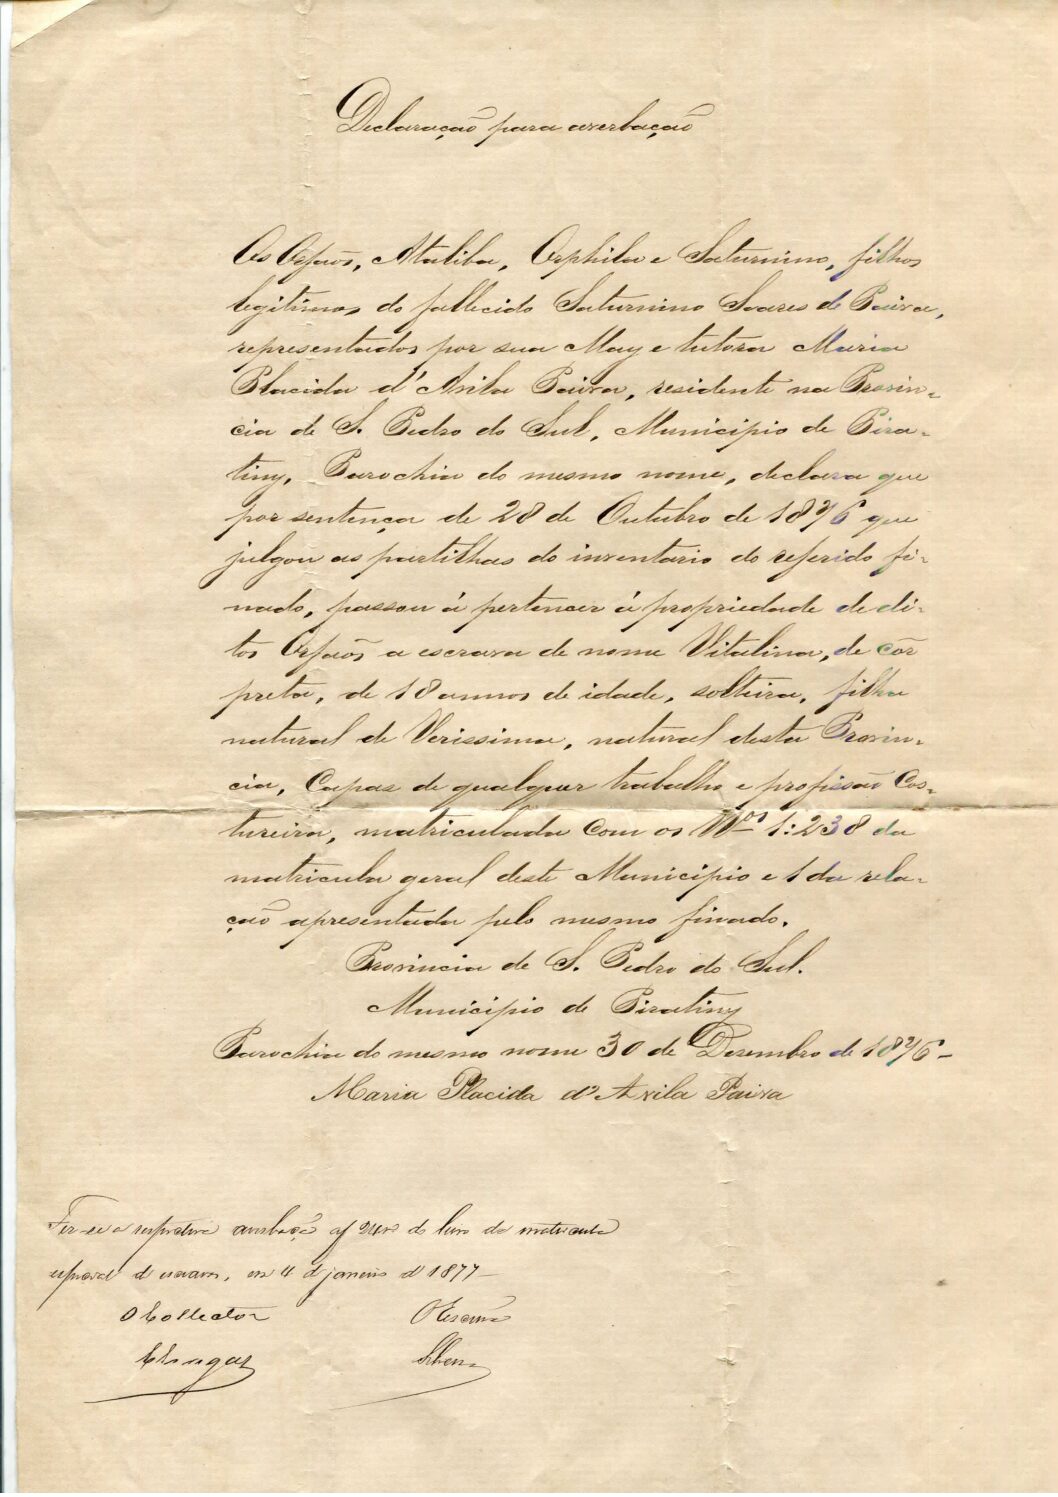 Declaração para averbação
Os Orfaõs, Ataliba, Orphila e Saturnino, filhos
legitimos do fallecido Saturnino Soares de Paiva,
representados por sua May e tutora Maria
Placida d'Avila Paiva, residente na Provin-
cia de S. Pedro do Sul, Municipio de Pira-
tiny, Parochia do mesmo nome, declara que
por sentença de 28 de Outubro de 1876 que
julgou as partilhas do inventario do referido fi-
nado, passou á pertencer á propriedade de di-
tos Orfaõs a escrava de nome Vitalina, de côr
preta, de 18 annos de idade, solteira, filha
natural de Verissima, natural desta Provin-
cia, Capaz de qualquer trabalho e profissaõ Cos-
tureira, matriculada com os Nos 1:238 da
matricula geral deste Municipio e 1 da rela-
çaõ apresentada pelo mesmo finado.
Provincia de S. Pedro do Sul.
Municipio de Piratiny
Parochia do mesmo nome 30 de Dezembro de 1876-
Maria Placida d'Avila Paiva
Fez-se a respectiva averbação do livro da matricula
especial de escravos, em 4 de janeiro de 1877-
O Collector O Escrivão